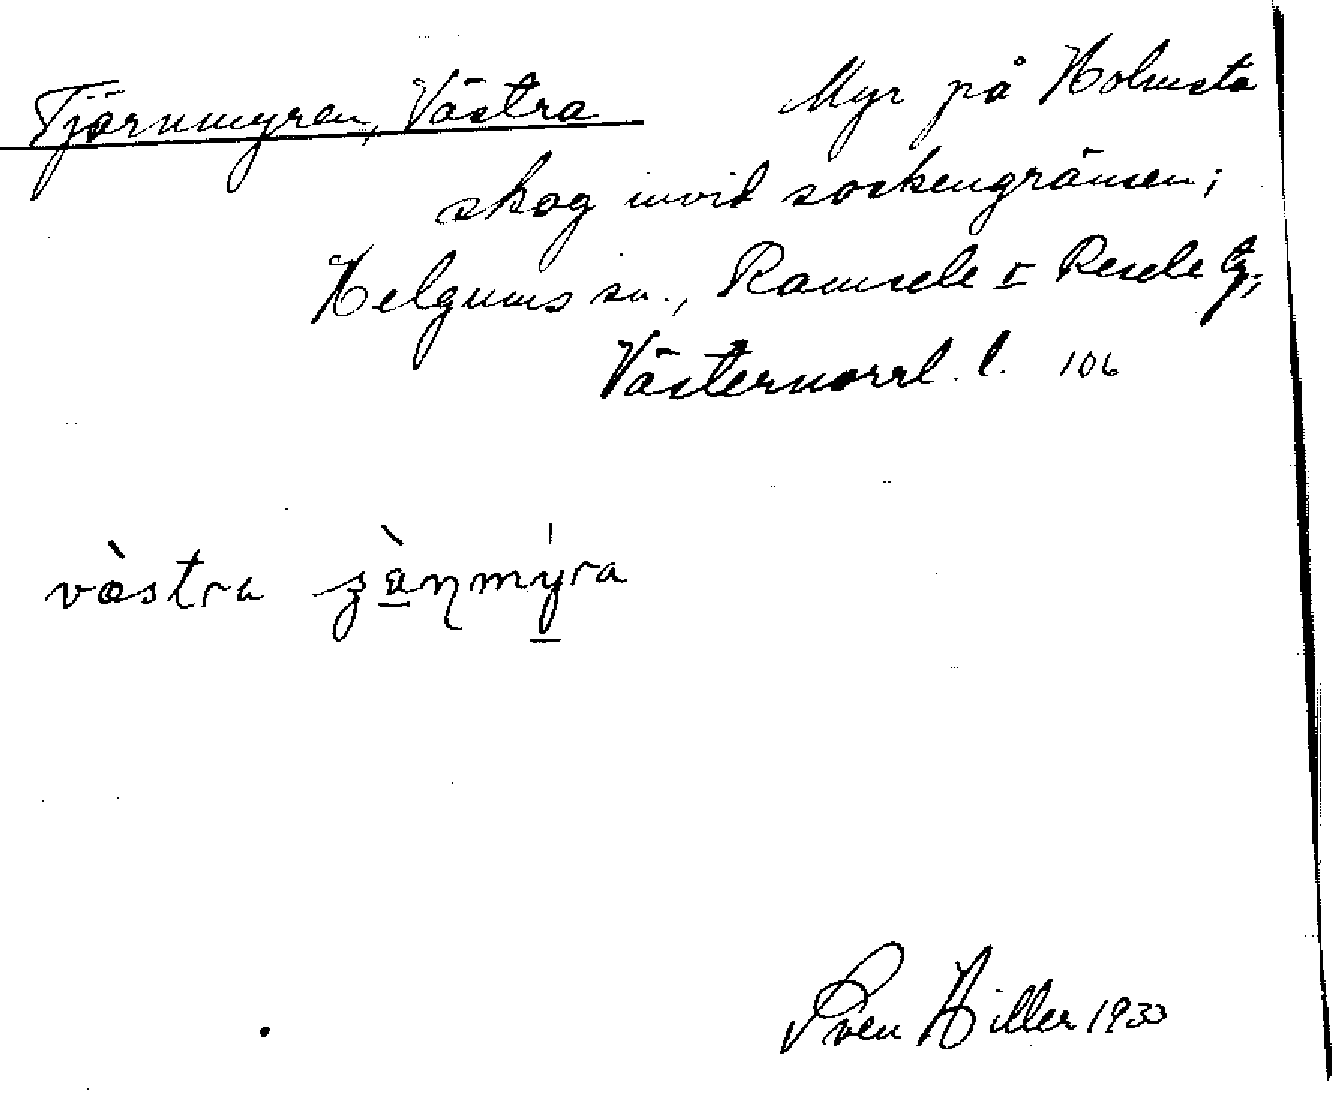 Tjärnmyren, Västra Myr på Holmsta
skog invid sockengränsen;
Helgums sn., Ramsele o Resele tg,
Västernorrl. l. 106
västra
Sven Hiller 1933